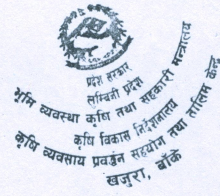 प्रदेश सरकार
लुम्बिनी प्रदेश
भूमि व्यवस्था कृषि तथा सहकारी मन्त्रालय
कृषि विकास निर्देशनालय
कृषि व्यवसाय प्रवर्द्धन सहयोग तथा तालिम केन्द्र
खजुरा, बाँके